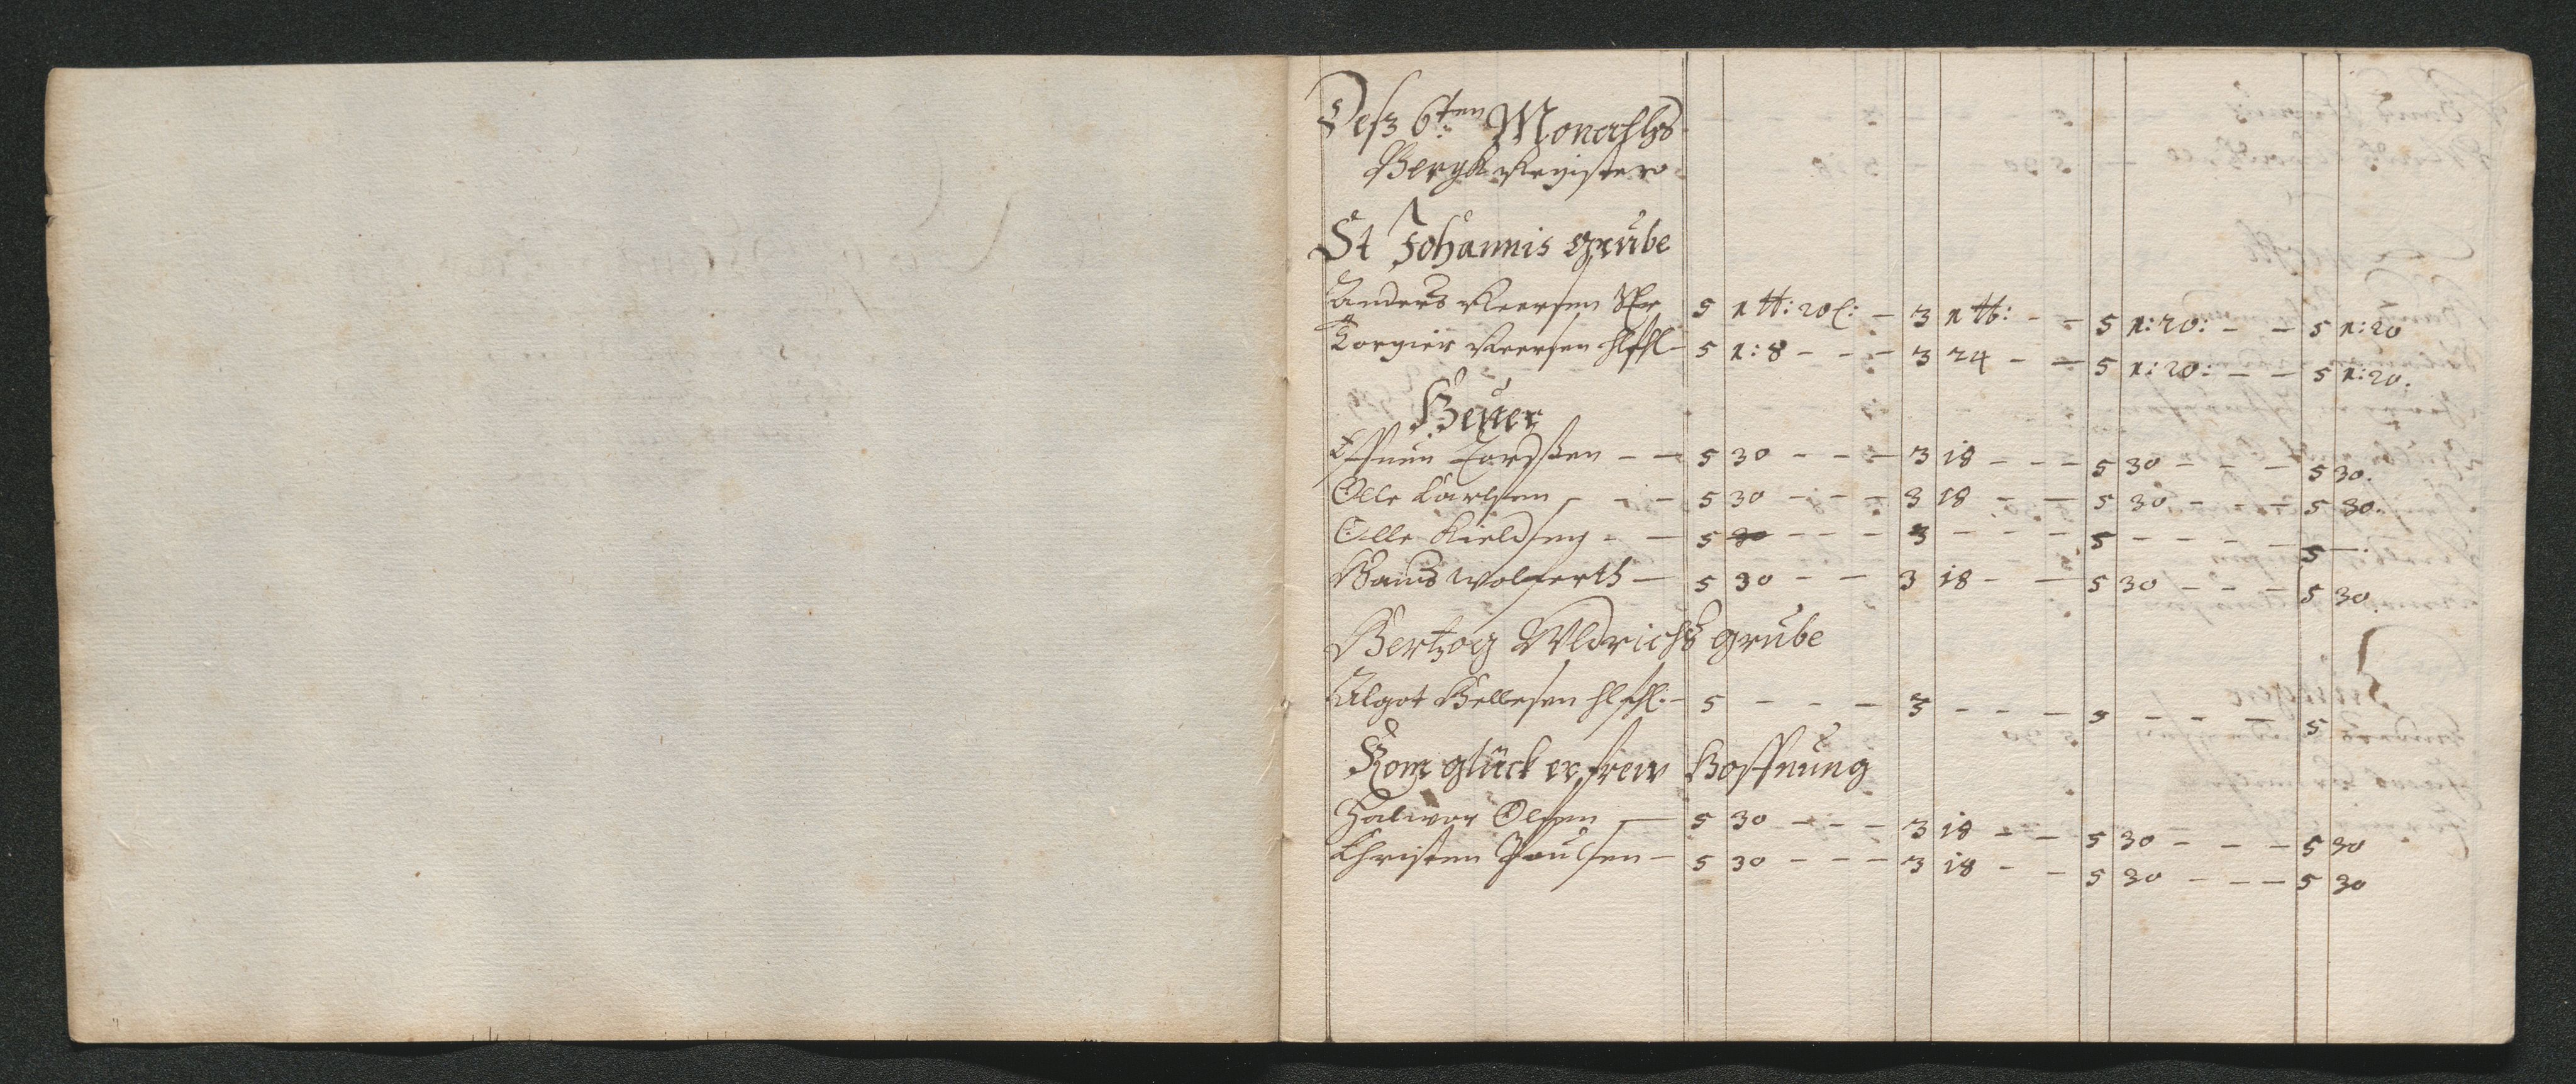 Deß 6ten Monathß
Bergk Register
St Johannis grube
Anders 5 1 tt: 20 ß: - 3 1 tt: - - 5 1:20: - - 5 1:20
Torgier 5 1:8 - - - 3 24 - - 5 1:20: - - 5 1:20.
Heuer
- - 5 30 - - - 3 18 - - - 5 30 - - - 5 30.
Olle Carlsen - - - 5 30 - - - 3 18 - - 5 30 - - - 5 30.
Olle Kieldsen - - 5 30 - - - 3 - - - 5 - - - - 5 -.
Hans Wolferth - 5 30 - - 3 18 - - 5 30 - - - 5 30.
Hertzog Vldrichß grube
Algot Hellesen - 5 - - - 3 - - - 5 - - - 5
Kom glück erfrew Hoffnung
Halwor Olsen - 5 30 - - - 3 18 - - 5 30 - - - 5 30
Christen Poulsen - 5 30 - - - 3 18 - - 5 30 - - - 5 30